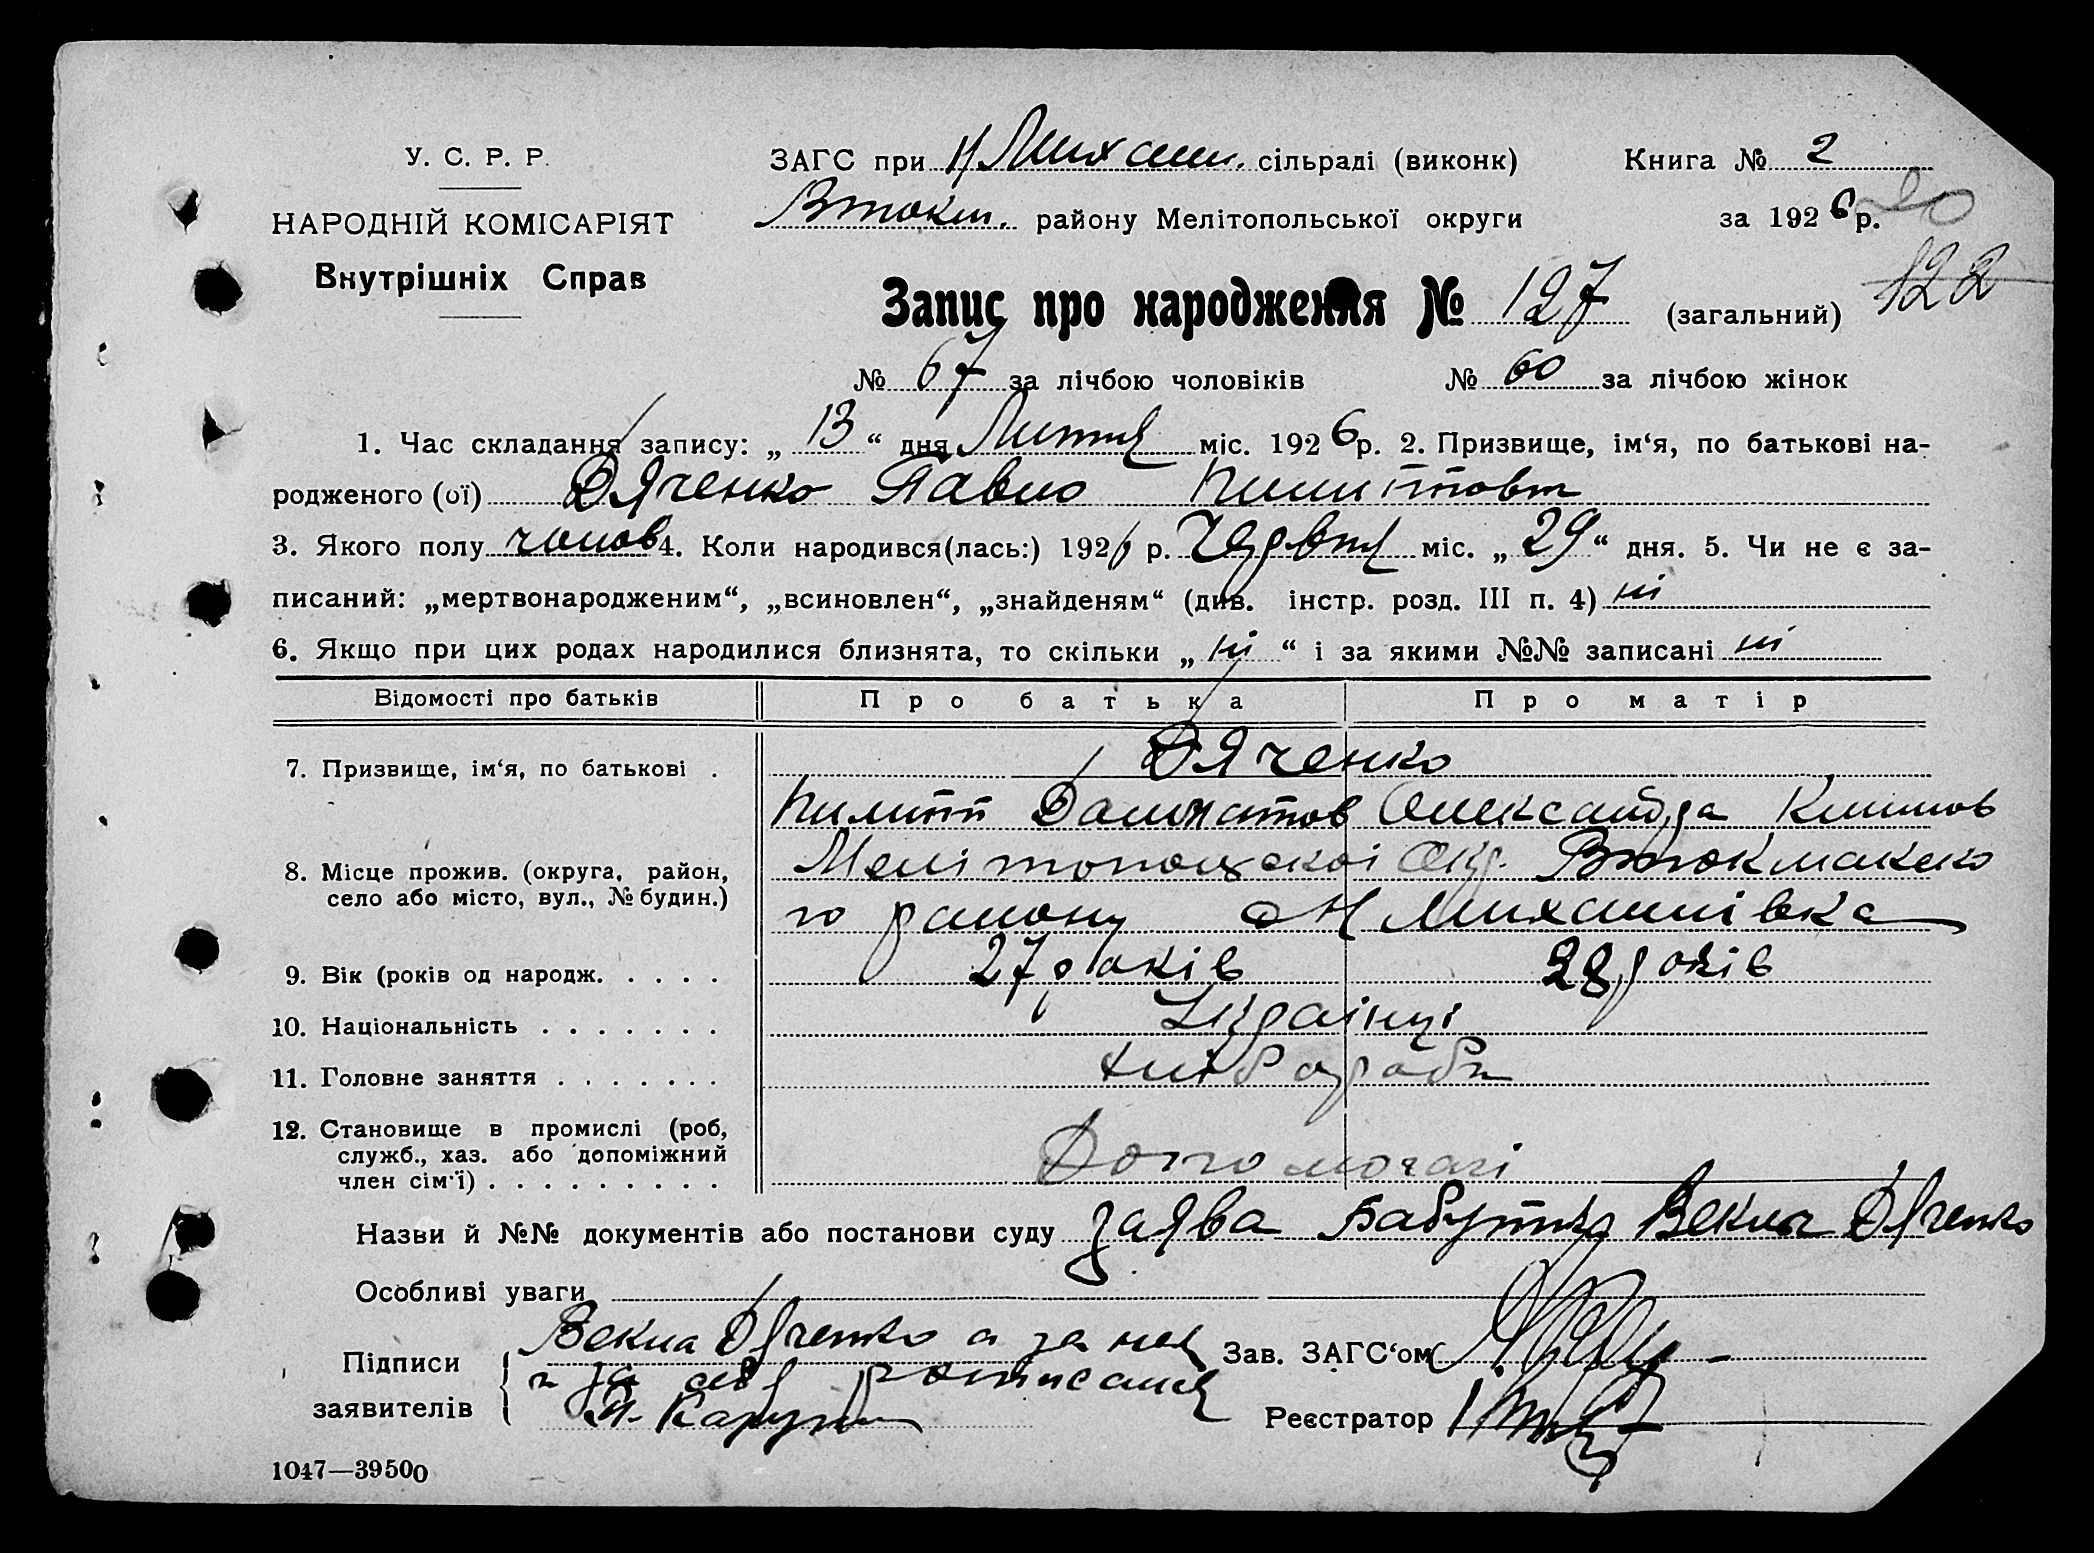 У. С. Р. Р.
НАРОДНІЙ КОМІСАРІЯТ
Внутрішніх Справ
ЗАГС при Н Михайл. сільраді (виконк)
Книга № 2
Втокм. району Мелітопольської округи
за 1926 р.
20
Запис про народження № 127 (загальний)
122
№ 67 за лічбою чоловіків № 60 за лічбою жінок
1. Час складання запису: „ 13 “ дня Липня міс. 1926 р. 2. Призвище, ім‘я, по батькові на-
родженого (ої) Дяченко Павло Пилиппов
3. Якого полу чолов 4. Коли народився(лась:) 1926 р. Червня міс. „ 29 “ дня. 5. Чи не є за-
писаний: „мертвонародженим“, „всиновлен“, „знайденям“ (див. інстр. розд. III п. 4) ні
6. Якщо при цих родах народилися близнята, то скільки „ ні “ і за якими №№ записані ні
Відомості про батьків Про батька Про матір
7. Призвище, ім‘я, по батькові . Дяченко
Пилипп Далматов Олександра Климов
8. Місце прожив. (округа, район,
село або місто, вул., № будин.)
Мелітопольскоі Окр. Втокмакско
го району с Н Михайлівка
9. Вік (років од народж. . . . . 27 років 28 років
10. Національність . . . . . . . Українці
11. Головне заняття . . . . . . . хлібороби
12. Становище в промислі (роб,
служб., хаз. або допоміжний
член сім‘ї) . . . . . . . . . Допомогачі
Назви й №№ документів або постанови суду заява Бабушки Векла Дяченко
Особливі уваги
Підписи
заявителів
Векла Дяченко а за нею
за росписался
Зав. ЗАГС‘ом
Реєстратор
1047—39500